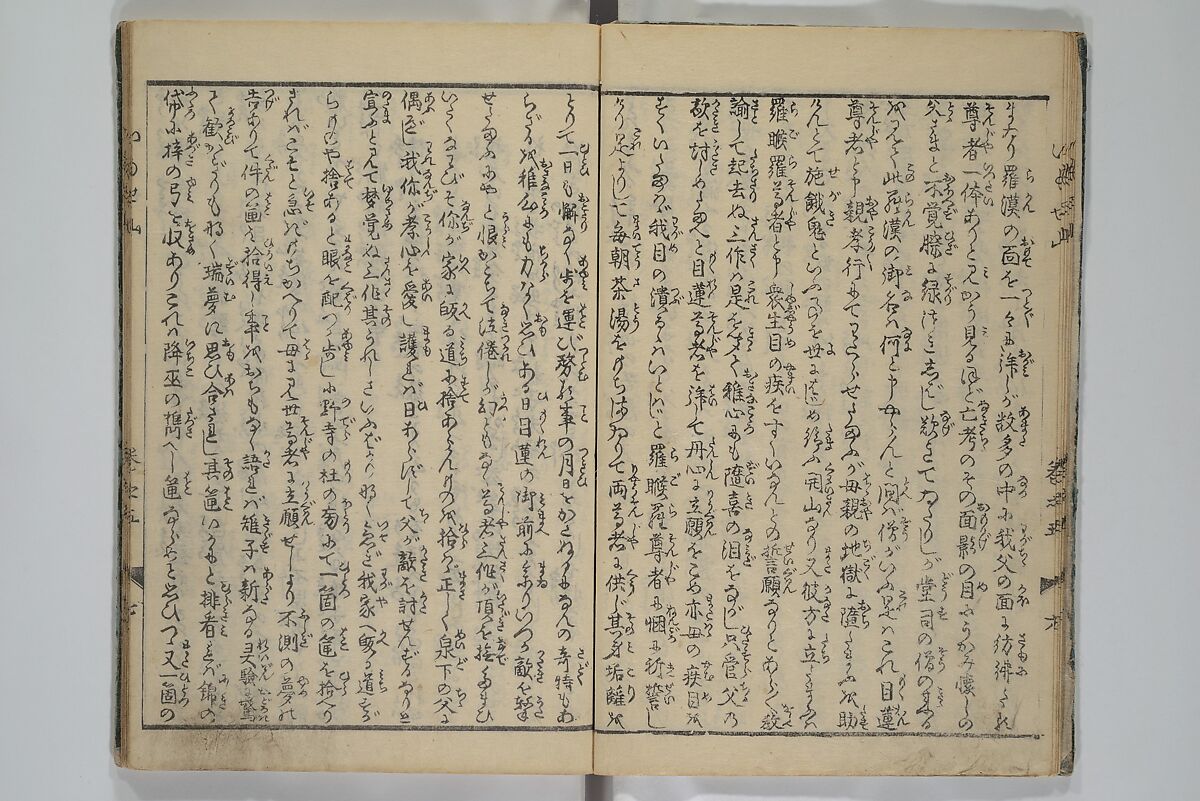 羅漢の面を一々に拝しが数多の中に我父の面に彷彿たる
尊者一体ありと見かう見るほど亡考のその面影の目にうかみ懐しの
父さまと不覚膝に縁つきしばし歎きてゐたりしが堂司の僧の来る
此羅漢の御名は何と申やらんと問へば僧がいふ是はこれ目蓮
尊者と申親孝行にてわたらせたまふが母親の地獄に堕しを助
けんとて施餓鬼といふことを世にはじめ給ふ開山なり又彼方に立たまふは
羅睺羅尊者と申衆生目の疾をすくいなんとの誓言願なりとあつく教
諭して起去ぬ三作は是をきく稚心にも随喜の泪をながし只管父の
敵を討しめたまへと目蓮尊者を拝して丹心に立願をこめ亦母の疾目を
すくいたまはゞ我目の潰るゝはいとはじと羅睺羅尊者に悃に祈誓し
けり是よりして毎朝茶湯をもちはゐりて両尊者に供じ其身垢離を
とりて一日も懈なく歩を運び務る事の月日をかさねるもなんの奇特もあ
らざるを稚心にも力なく思ひある日目蓮の御前に参りいつか敵を撃
せたまふにやと恨かこちて泣倦しが幻ともなく尊者三作が頂を撫たまひ
いたくななげきそ你が家に皈る道に捨あらんものを拾はゞ正しく泉下の父に
偶べし我你が孝心を愛し護れば日あらずして父が敵を討せんずるなりと
宣ふと見て夢覚ぬ三作其うれしさいふばかり那く急ぎ我家へ皈る道すが
らものや捨あると眼を配つゝ歩しに野寺の杜の旁にて一箇の筐を拾へり
さればこそと急ぎもちかへりて母に見せ尊者に立願せしより不測の夢の
告ありて件の筐を拾得し事おちもなく語れば雉子は新なる灵験に驚
く歓かぎりも那く瑞夢に思ひ合され其筐はうもと排看れば錦の
帒に梓の弓を収ありこれは降巫の携へし筐ならんと思ひつゝ又一箇の